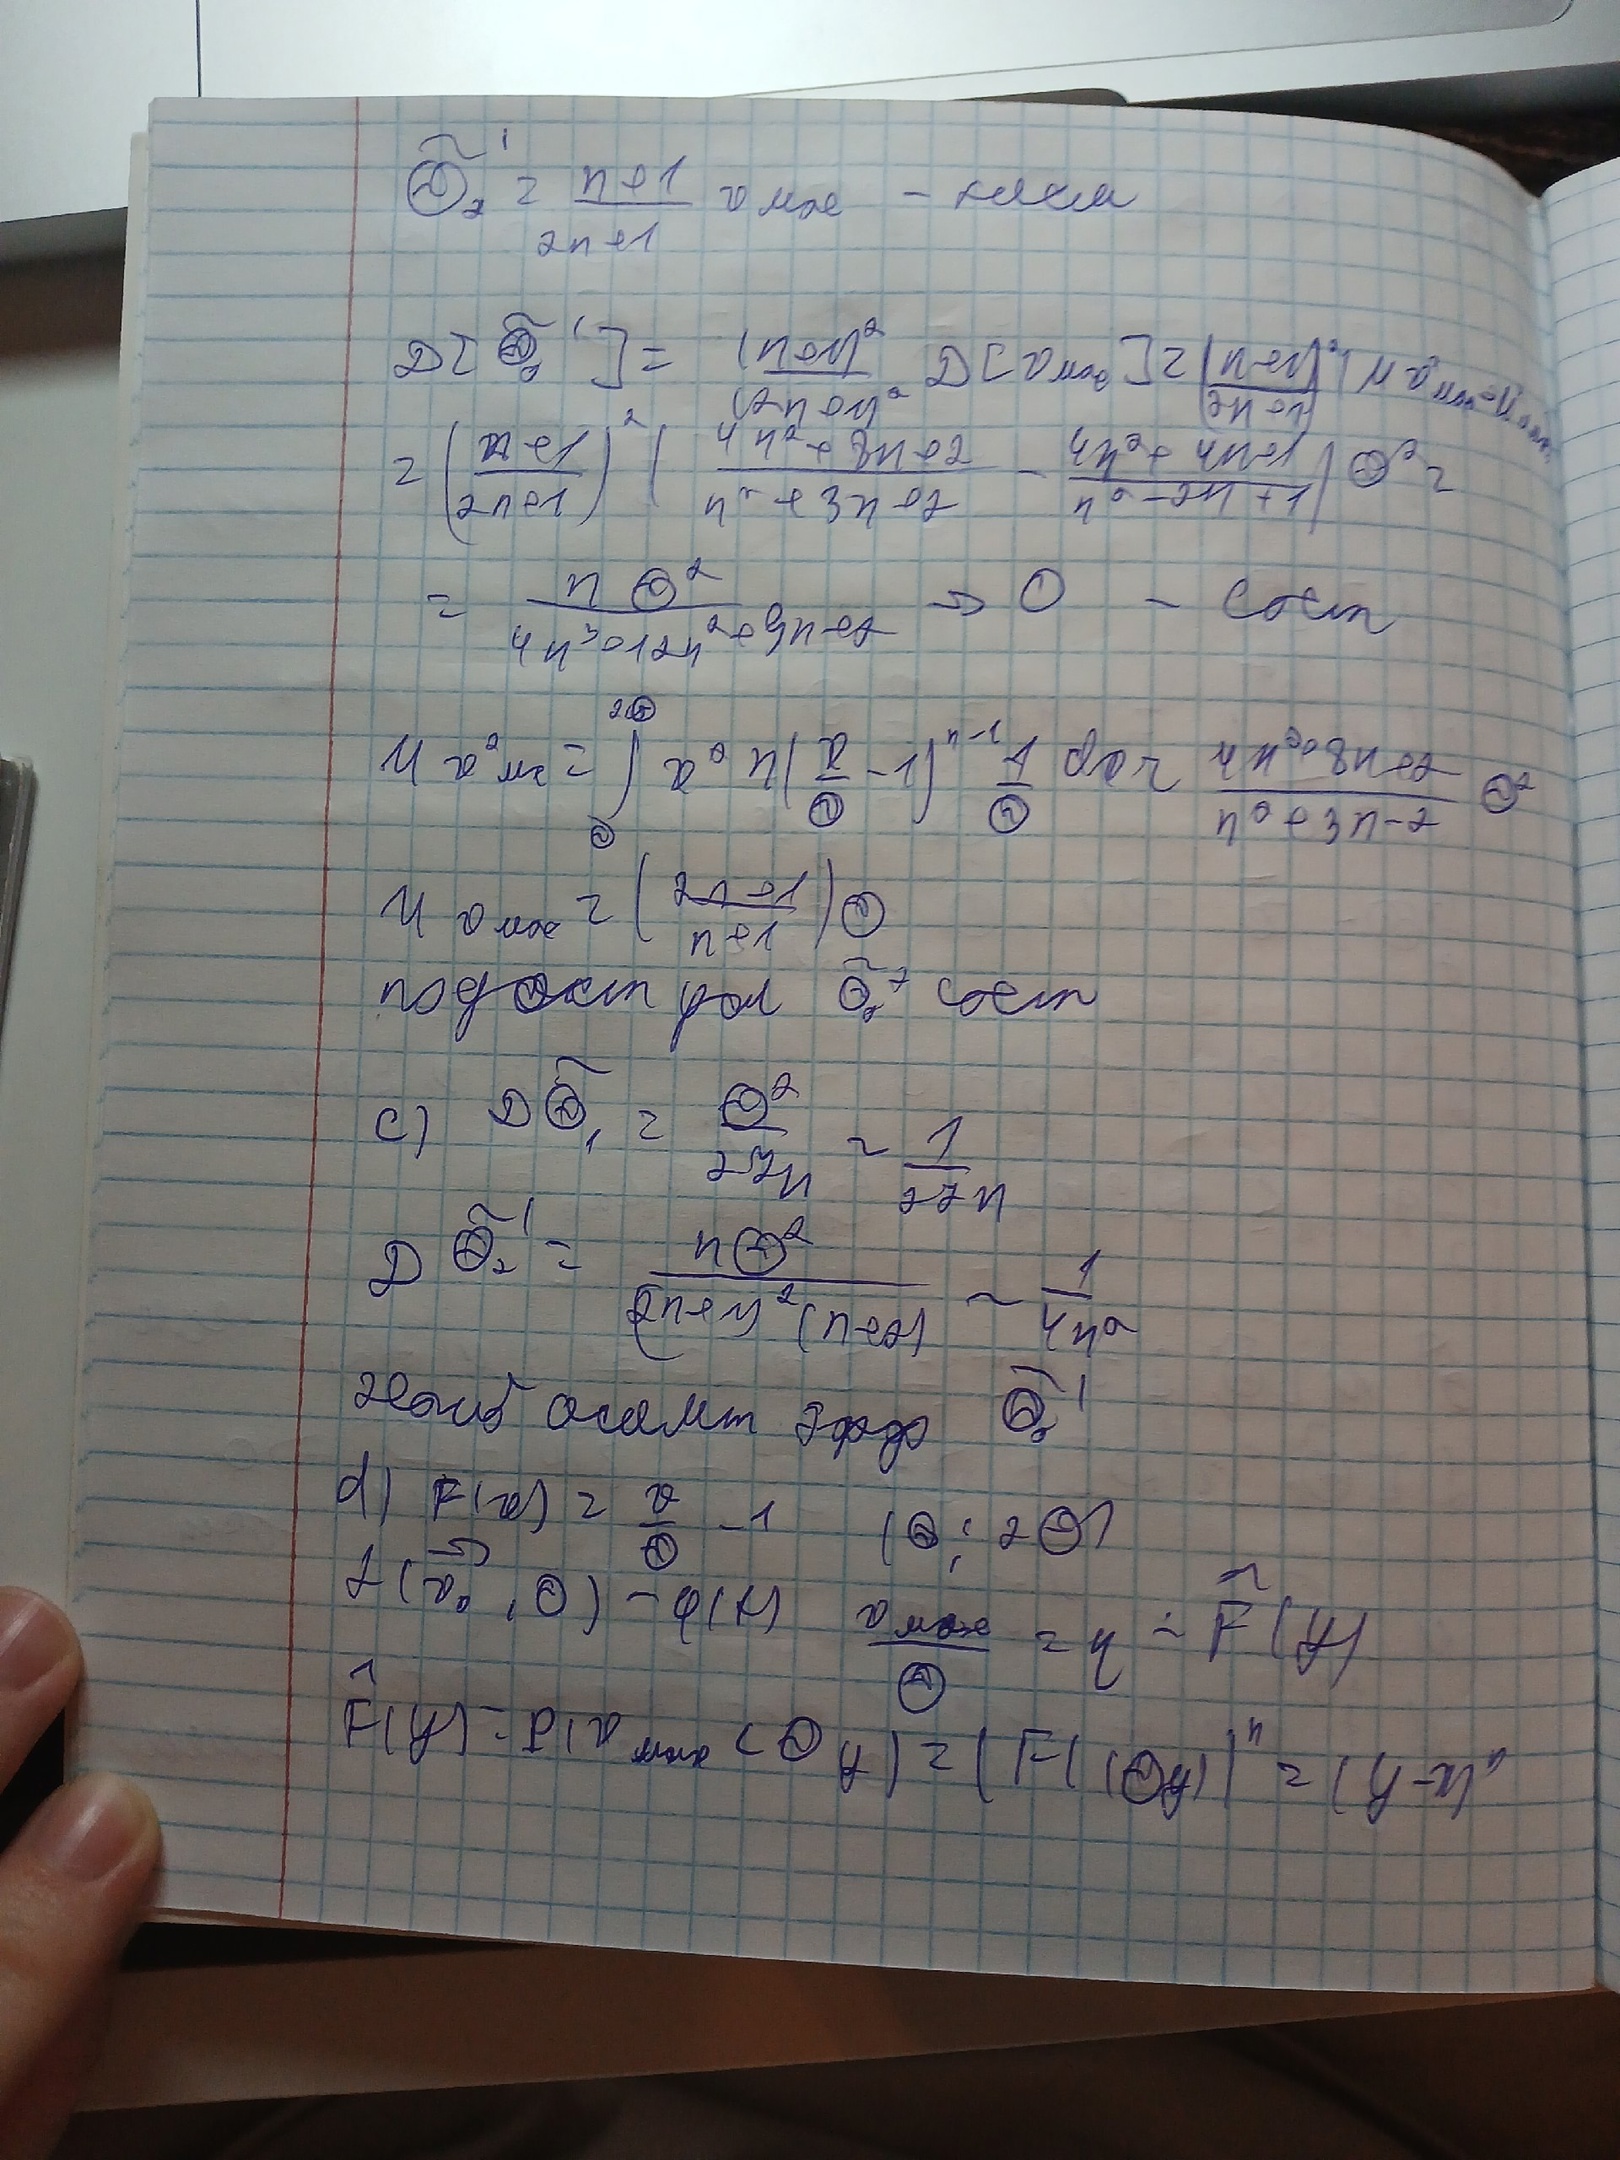 Θ̃₂' = (n+1)/(2n+1) x max –
D[Θ̃₂'] = (n+1)²/(2n+1)² D[x max] = ((n+1)/(2n+1))² (M x² max -
= ((n+1)/(2n+1))² ((4n²+8n+2)/(n²+3n+2) - (4n²+4n+1)/(n²-2n+1)) Θ² =
= nΘ²/(4n³+12n²+9n+2) → 0 – сост
M x² max = ∫_Θ^{2Θ} x² n (x/Θ - 1)^{n-1} 1/Θ dx = (4n²+8n+2)/(n²+3n-2) Θ²
M x max = ((2n+1)/(n+1)) Θ
по дост усл Θ̃₂' сост
c) DΘ̃₁ = Θ²/27n ~ 1/27n
DΘ̃₂' = nΘ²/((2n+1)²(n+2)) ~ 1/4n²
Θ̃₂'
d) F(x) = x/Θ - 1 (Θ; 2Θ)
f(x⃗ₙ, Θ) ~ φ(t) x max/Θ = y ~ F̂(y)
F̂(y) = P(x max < Θy) = (F(Θy))ⁿ = (y-1)ⁿ